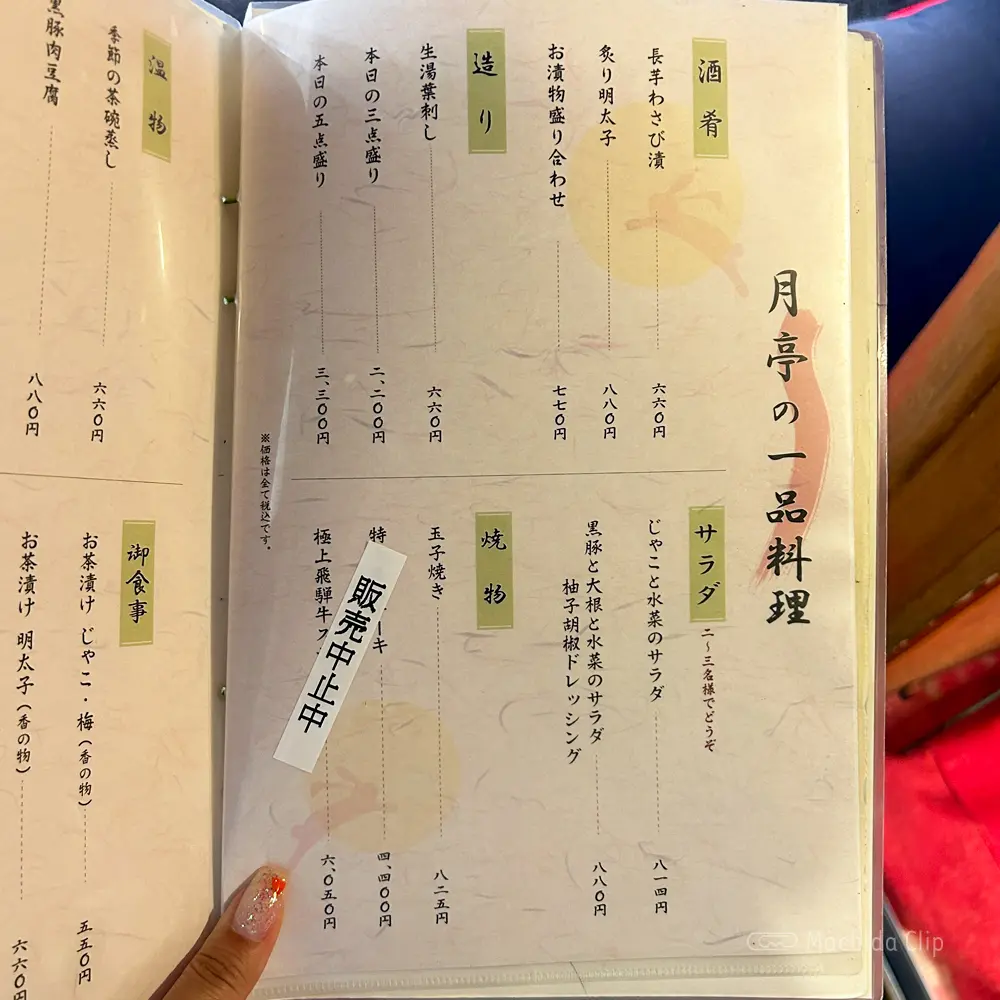 月亭の一品料理
酒肴
長芋わさび漬 六六〇円
炙り明太子 八八〇円
お漬物盛り合わせ 七七〇円
造り
生湯葉刺し 六六〇円
本日の三点盛り 二、二〇〇円
本日の五点盛り 三、三〇〇円
サラダ 二～三名様でどうぞ
じゃこと水菜のサラダ 八一四円
黒豚と大根と水菜のサラダ
柚子胡椒ドレッシング 八八〇円
焼物
玉子焼き 八二五円
特 ーキ 四、四〇〇円
極上飛騨牛ス 六、〇五〇円
販売中止中
※価格は全て税込です。
温物
季節の茶碗蒸し 六六〇円
黒豚肉豆腐 八八〇円
御食事
お茶漬け じゃこ・梅(香の物) 五五〇円
お茶漬け 明太子(香の物) 六六〇円
Machida Clip